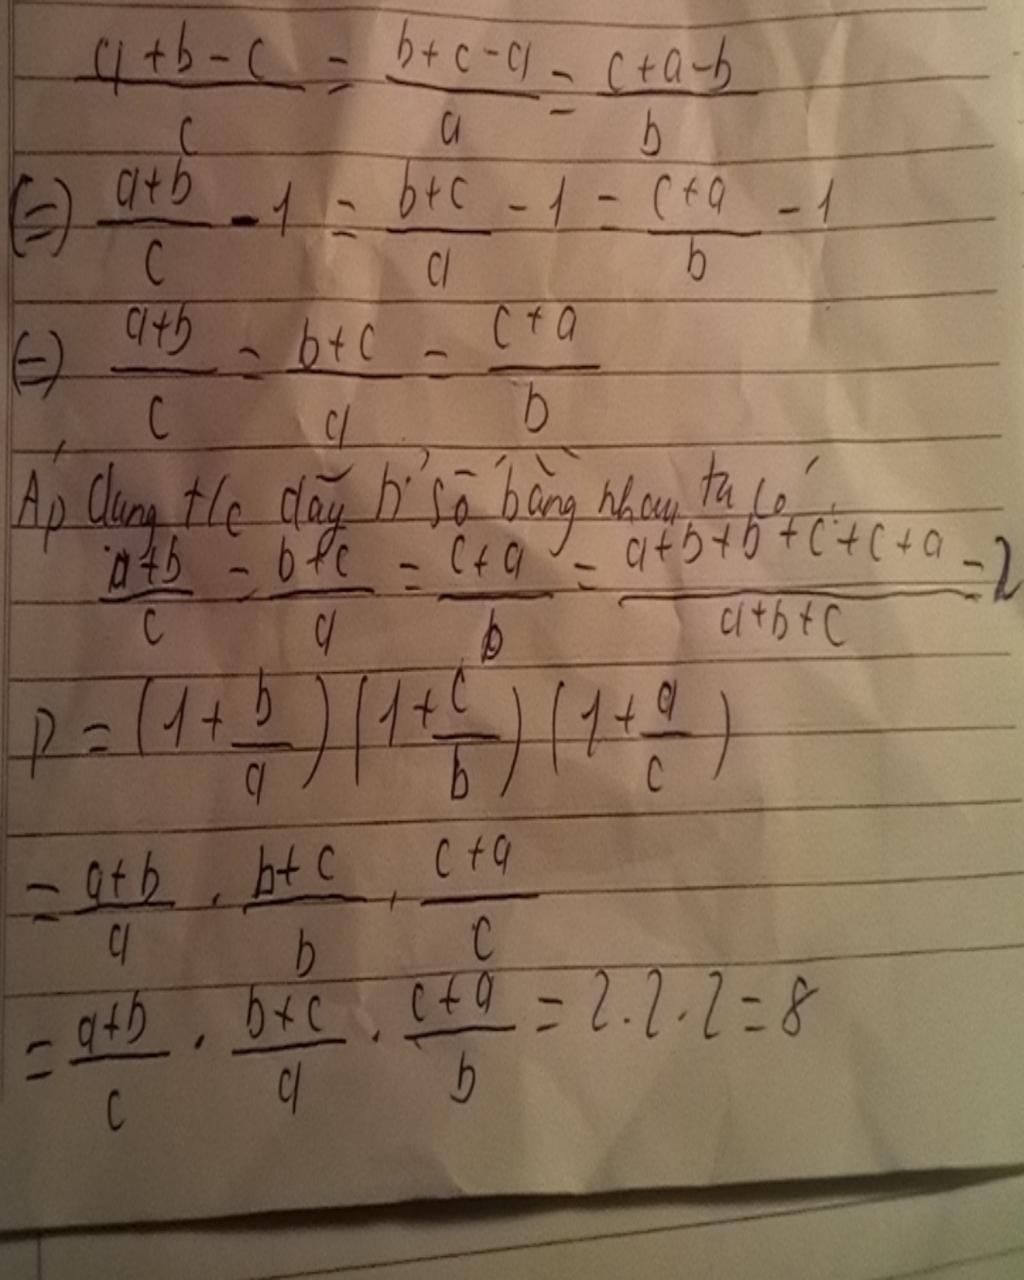 (a+b-c)/c = (b+c-a)/a = (c+a-b)/b
(=) (a+b)/c - 1 = (b+c)/a - 1 = (c+a)/b - 1
(=) (a+b)/c = (b+c)/a = (c+a)/b
Áp dụng t/c dãy tỉ số bằng nhau ta có:
(a+b)/c = (b+c)/a = (c+a)/b = (a+b+b+c+c+a)/(a+b+c) = 2
P = (1 + b/a) (1 + c/b) (1 + a/c)
= (a+b)/a . (b+c)/b . (c+a)/c
= (a+b)/c . (b+c)/a . (c+a)/b = 2.2.2 = 8